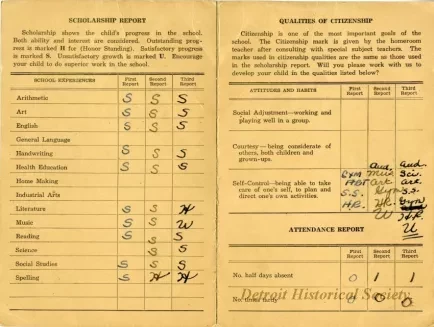 SCHOLARSHIP REPORT
Scholarship shows the child's progress in the school.
Both ability and interest are considered. Outstanding prog-
ress is marked H for (Honor Standing). Satisfactory progress
is marked S. Unsatisfactory growth is marked U. Encourage
your child to do superior work in the school.
SCHOOL EXPERIENCES First Report Second Report Third Report
Arithmetic S S S
Art S S S
English S S S
General Language
Handwriting S S S
Health Education S S S
Home Making
Industrial Arts
Literature S S H
Music S S U
Reading S S S
Science S S
Social Studies S S S
Spelling S H H
QUALITIES OF CITIZENSHIP
Citizenship is one of the most important goals of the
school. The Citizenship mark is given by the homeroom
teacher after consulting with special subject teachers. The
marks used in citizenship qualities are the same as those used
in the scholarship report. Will you please work with us to
develop your child in the qualities listed below?
ATTITUDES AND HABITS First Report Second Report Third Report
Social Adjustment—working and
playing well in a group.
Courtesy—being considerate of
others, both children and
grown-ups.
Self-Control—being able to take
care of one's self, to plan and
direct one's own activities.
GYM Aud. Aud.
ART Mus. Sci.
S.S. art art
H.R. Gym S.S.
H.R. Gym
U H.R.
U
ATTENDANCE REPORT
First Report Second Report Third Report
No. half days absent 0 1 1
No. times tardy 0 0
Detroit Historical Society